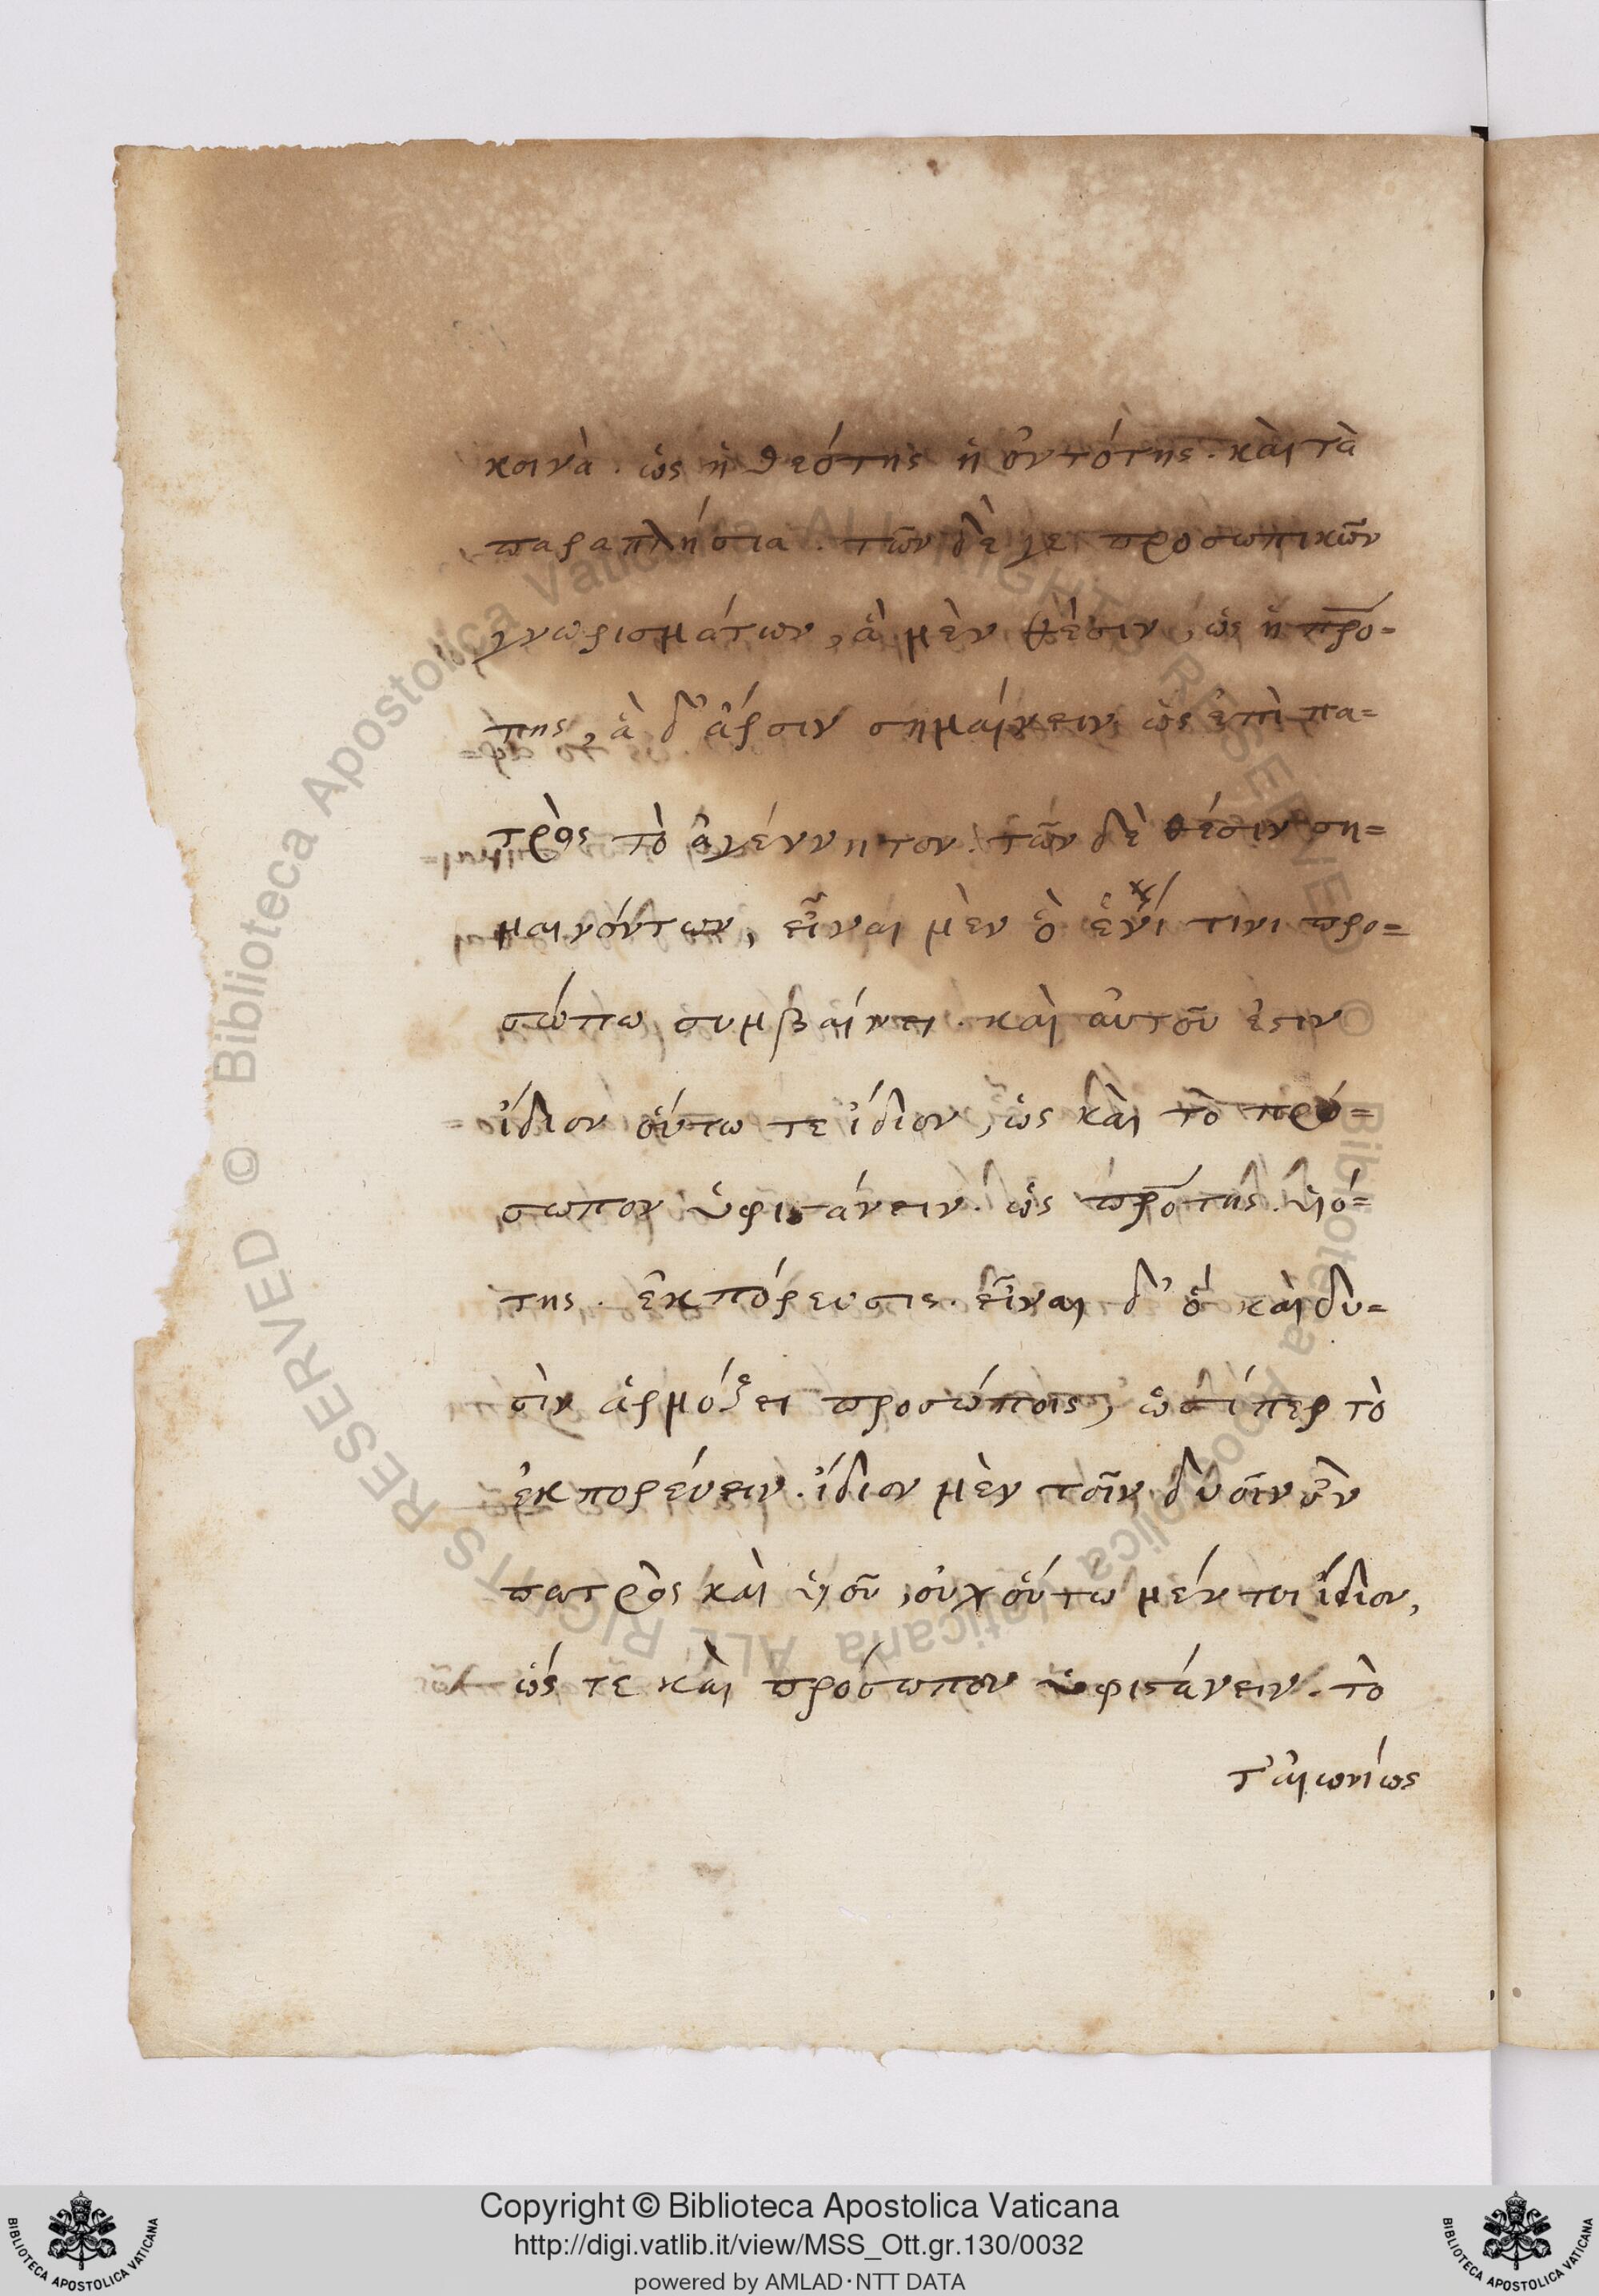 κοινὰ. ὡς ἡ θεότης ἡ ὀντότης. καὶ τὰ
παραπλήσια. τῶν δέ γε προσωπικῶν
γνωρισμάτων, ἃ μὲν θέσιν, ὡς ἡ πρ̅ο=
της, ἃ δ' ἄρσιν σημαίνειν ὡς ἐπὶ πα=
τρὸς τὸ ἀγέννητον. τῶν δὲ θέσιν ση=
μαινόντων, εἶναι μὲν ὃ ἑνί τινι προ=
σώπω συμβαίνει. καὶ αὐτοῦ ἐστιν
ἴδιον οὕτω τε ἴδιον, ὡς καὶ τὸ πρό=
σωπον ὑφιστάνειν. ὡς πρ̅οτης. υἱό=
της. ἐκπόρευσις. εἶναι δ' ὃ καὶ δυ=
σὶν ἁρμόζει προσώποις, ὥσπερ τὸ
ἐκπορεύειν. ἴδιον μὲν τοῖν δυοῖν ὂν
πατρὸς καὶ υἱοῦ, οὐχ οὕτω μέντοι ἴδιον,
ὥς τε καὶ πρόσωπον ὑφιστάνειν. τὸ
τ' αἰωνίως
Copyright © Biblioteca Apostolica Vaticana
http://digi.vatlib.it/view/MSS_Ott.gr.130/0032
powered by AMLAD·NTT DATA
BIBLIOTECA APOSTOLICA VATICANA
BIBLIOTECA APOSTOLICA VATICANA
© Biblioteca Apostolica Vaticana ALL RIGHTS RESERVED © Biblioteca Apostolica Vaticana ALL RIGHTS RESERVED